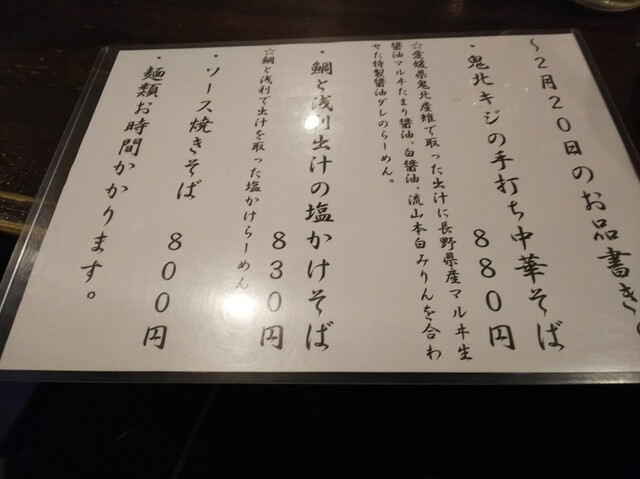 〜2月20日のお品書き〜
・鬼北キジの手打ち中華そば
880円
☆愛媛県鬼北産雉で取った出汁に長野県産マルヰ生
醤油マルヰたまり醤油、白醤油、流山本白みりんを合わ
せた特製醤油ダレのらーめん。
・鯛と浅利出汁の塩かけそば
830円
☆鯛と浅利で出汁を取った塩かけらーめん
・ソース焼きそば
800円
・麺類お時間かかります。